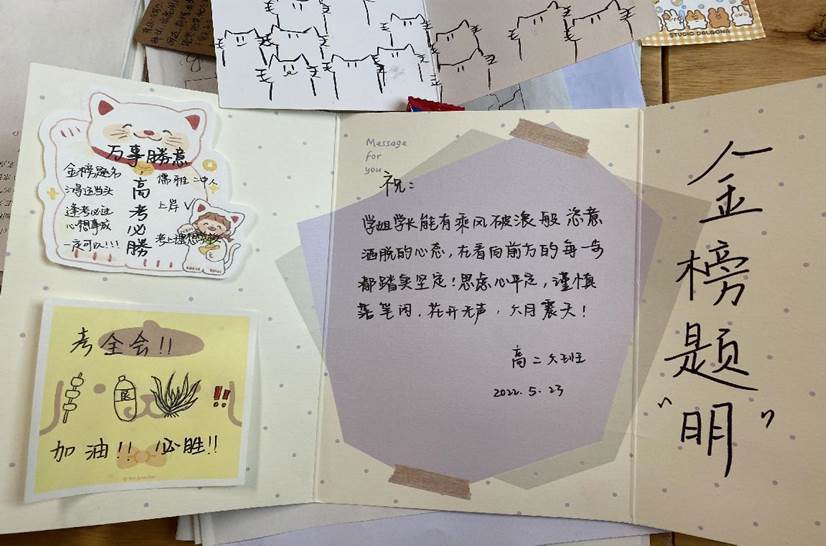 万事勝意
金榜题名
鸿运当头
逢考必过
心想事成
一定可以!!!
高考必勝
儒雅二中人
上岸√
考上理想学校
考全会!!
加油!! 必胜!!
Message
for
you
祝:
学姐学长能有乘风破浪般恣意
洒脱的心态,在看向前方的每一步
都踏实坚定!思虑心平定,谨慎
落笔闲.花开无声,六月震天!
高二六班
2022.5.23
金榜题"明"
STUDIO